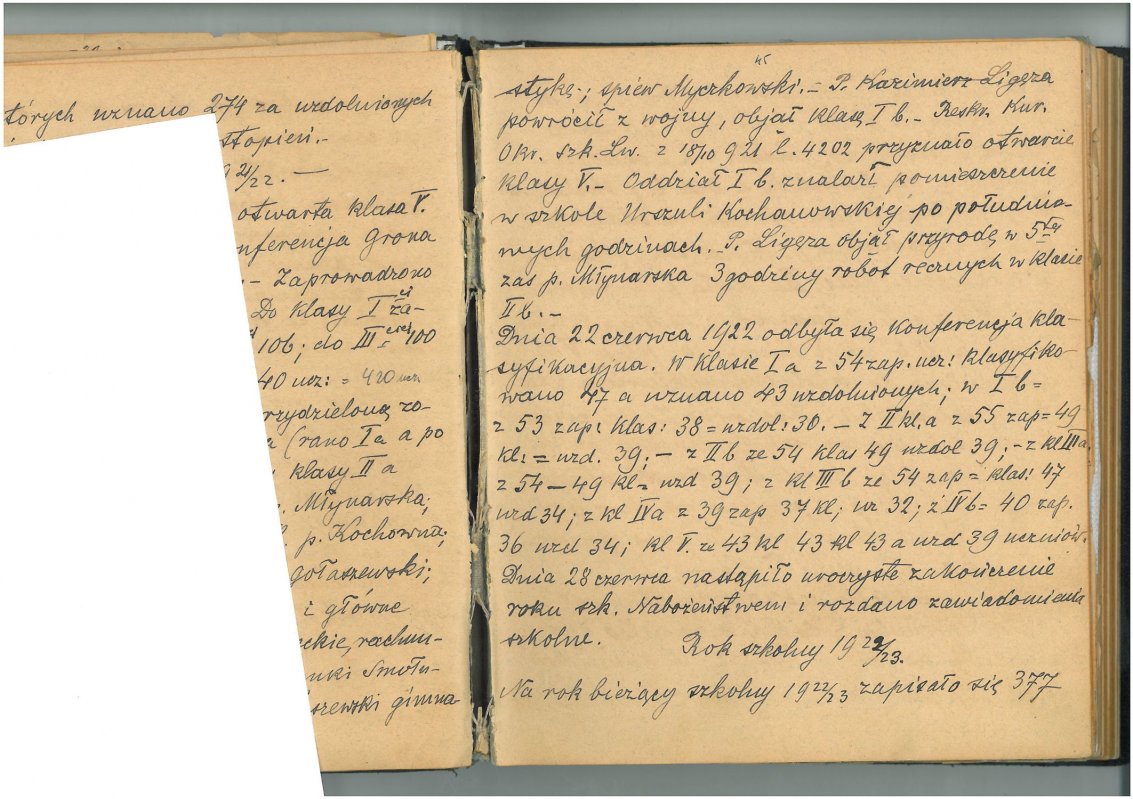 tórych uznano 274 za uzdolnionych
stopień.-
21/22. —
otwarta klasa V.
nferencja Grona
- Zaprowadzono
Do klasy I za-
106; do III 100
40 ucz: = 420 ucz
rzydzieloną zo-
(rano Ia a po
klasy II a
Młynarska;
p. Kochowna;
gołaszewski;
i główne
ckie, rachun-
unki Smołu-
szewski gimna-
45
stykę; śpiew Myczkowski. - P. Kazimierz Ligęza
powrócił z wojny, objął klasę I b. - Reskr. Kur.
Okr. szk. Lw. z 18/10 921 l. 4202 przyznało otwarcie
klasy V. - Oddział I b. znalazł pomieszczenie
w szkole Urszuli Kochanowskiej po południo-
wych godzinach. - P. Ligęza objął przyrodę w 5tej
zaś p. Młynarska 3 godziny robót ręcznych w klasie
II b. -
Dnia 22 czerwca 1922 odbyła się Konferencja kla-
syfikacyjna. W klasie Ia z 54 zap. ucz: klasyfiko-
wano 47 a uznano 43 uzdolnionych; w I b =
z 53 zap: klas: 38 = uzdol: 30. - Z II kl. a z 55 zap = 49
kl: = uzd. 39; - z II b ze 54 klas 49 uzdol 39; - z kl III a.
z 54 - 49 kl = uzd 39; z kl III b ze 54 zap = klas: 47
uzd 34; z kl IVa z 39 zap 37 kl; uz 32; z IVb = 40 zap.
36 uzd 34; kl V. ze 43 kl 43 kl 43 a uzd 39 uczniów.
Dnia 28 czerwca nastąpiło uroczyste zakończenie
roku szk. Nabożeństwem i rozdano zawiadomienia
szkolne. Rok szkolny 1922/23.
Na rok bieżący szkolny 1922/23 zapisało się 377